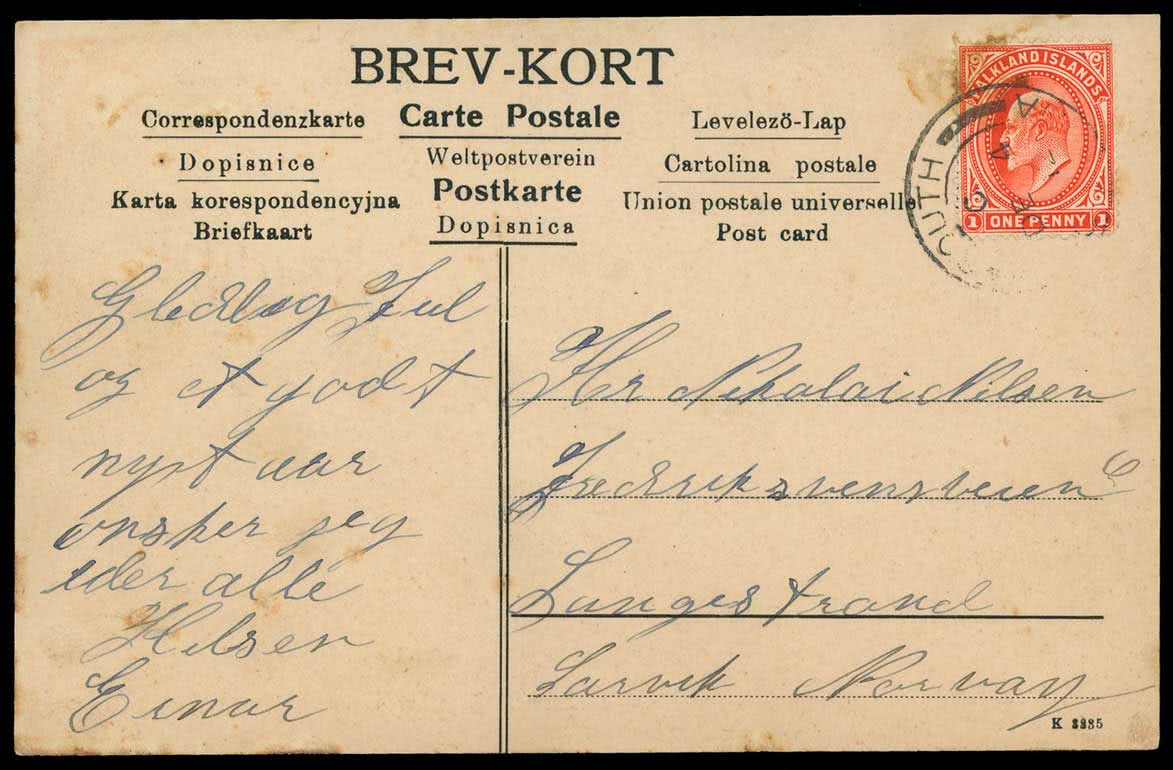 BREV-KORT
Correspondenzkarte
Carte Postale
Levelezö-Lap
Dopisnice
Weltpostverein
Cartolina postale
Karta korespondencyjna
Postkarte
Union postale universelle
Briefkaart
Dopisnica
Post card
FALKLAND ISLANDS
1 ONE PENNY 1
OUTH
Gledelig Jul
og et godt
nyt aar
onsker jeg
eder alle
Hilsen
Einar
Hr Nikolai Nilsen
Fredriksvernsveien 6
Langestrand
Larvik Norway
K 3885